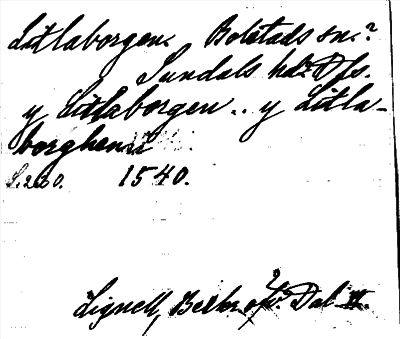 Litlaborgen. Bolstads sn.?
Sundals hd. Dfs.
y Litlaborgen .. y Litla-
borghena
S. 280. 1540.
Lignell, Beskr. öfv. Dal II.